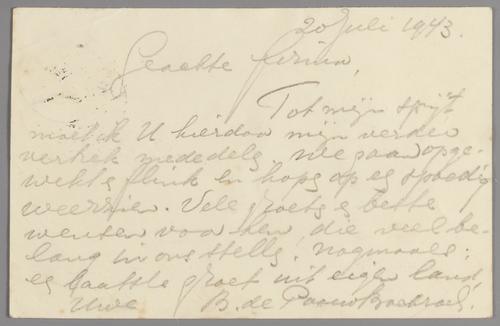 20 Juli 1943.
Geachte firma,
Tot mijn spijt
moet ik U hierdoor mijn verder
vertrek mededeelg, we gaan opge-
wekt & flink en hopg op eg spoedig
weerzien. Vele groetg & beste
wensen voor hen die veel be-
lang in ons stellg. nogmaals:
eg laatste groet uit eigen land,
Uwe B. de Paauw Bachrach.